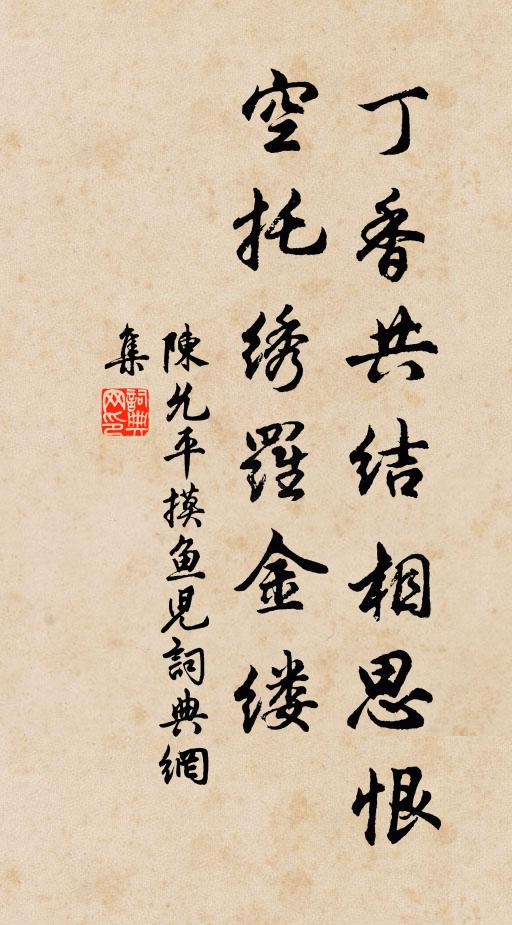 丁香共结相思恨
空托绣羅金缕
陳允平摸鱼児詞典網
集
詞典網印